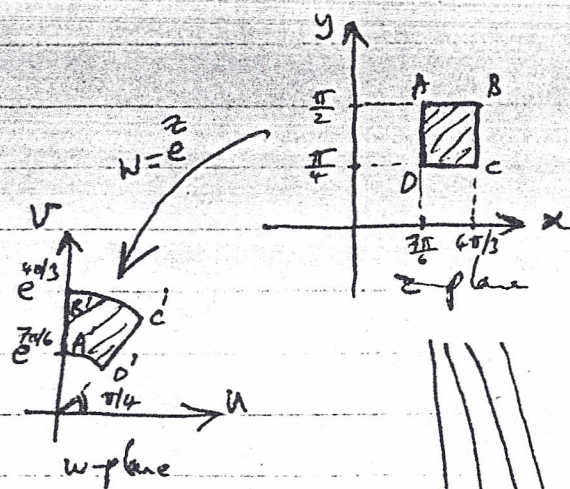 y
A B
π/2
w = e^z
π/4
D C
x
7π/6 4π/3
z-plane
V
e^4π/3
B'
C'
e^7π/6
A'
D'
π/4
u
w-plane